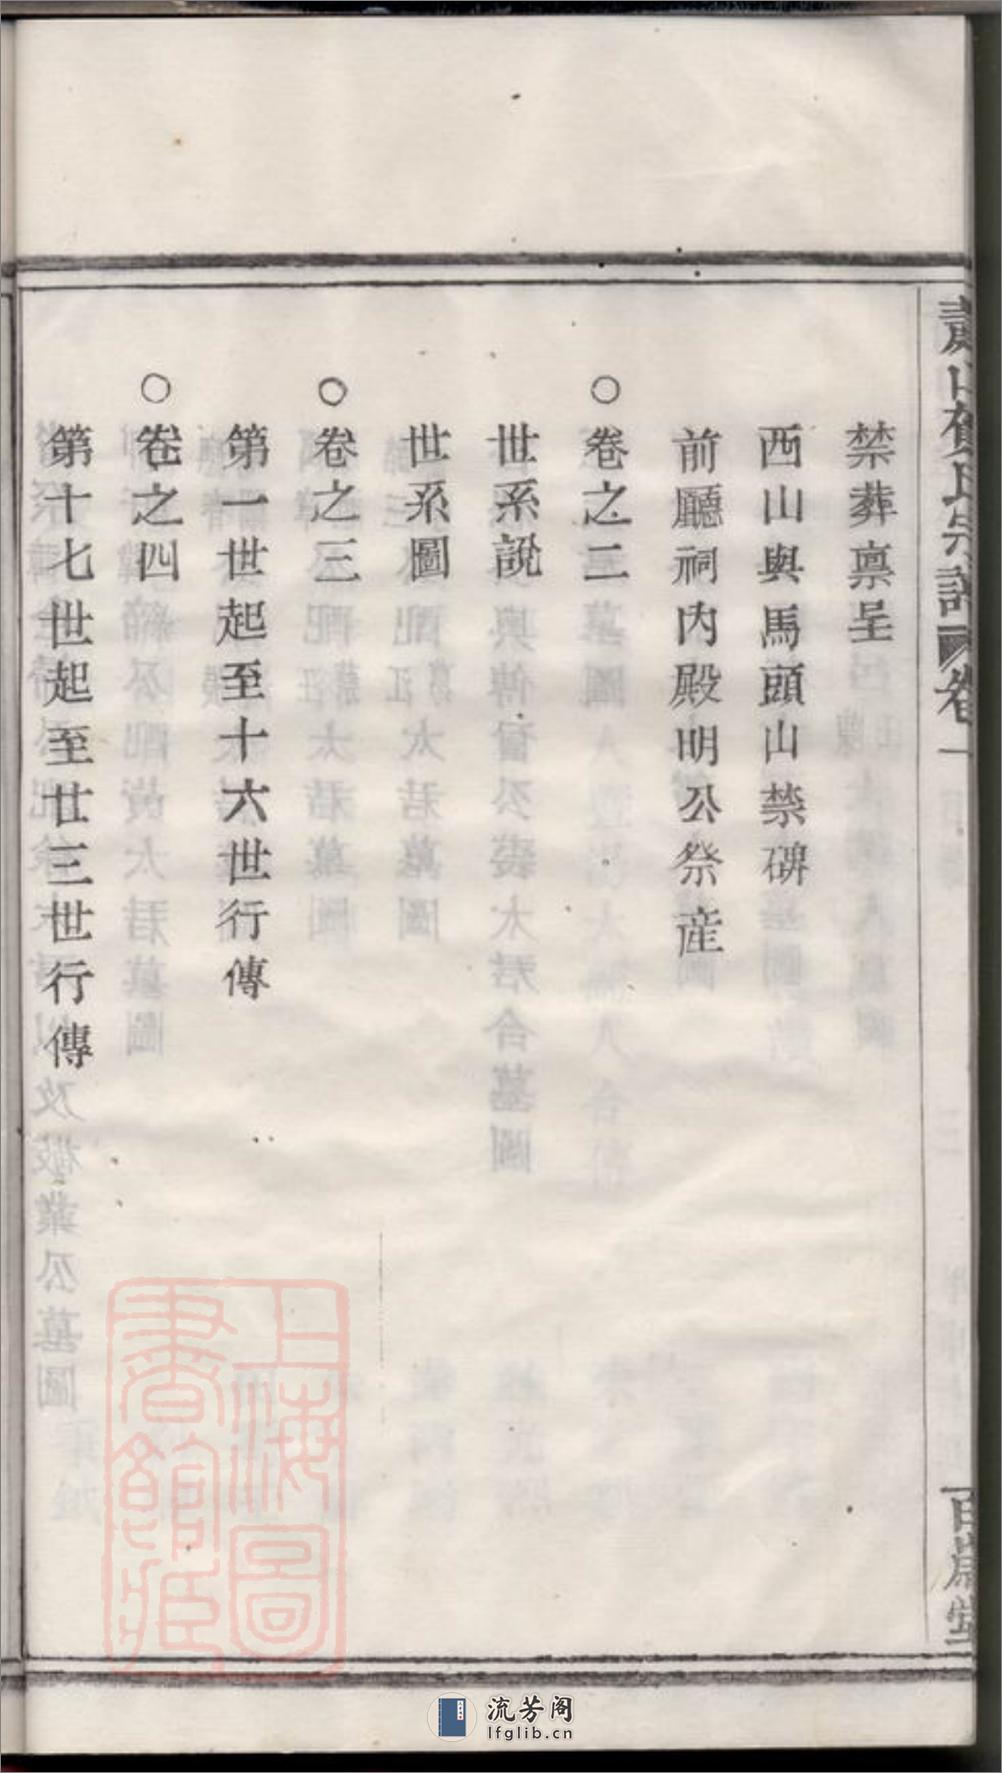 蕭山賀氏宗譜 卷一
百歲堂
禁葬禀呈
西山與馬頭山禁碑
前廳祠内殿明公祭産
○卷之二
世系說
世系圖
○卷之三
第一世起至十六世行傳
○卷之四
第十七世起至廿三世行傳
上海圖書館藏
流芳阁
lfglib.cn